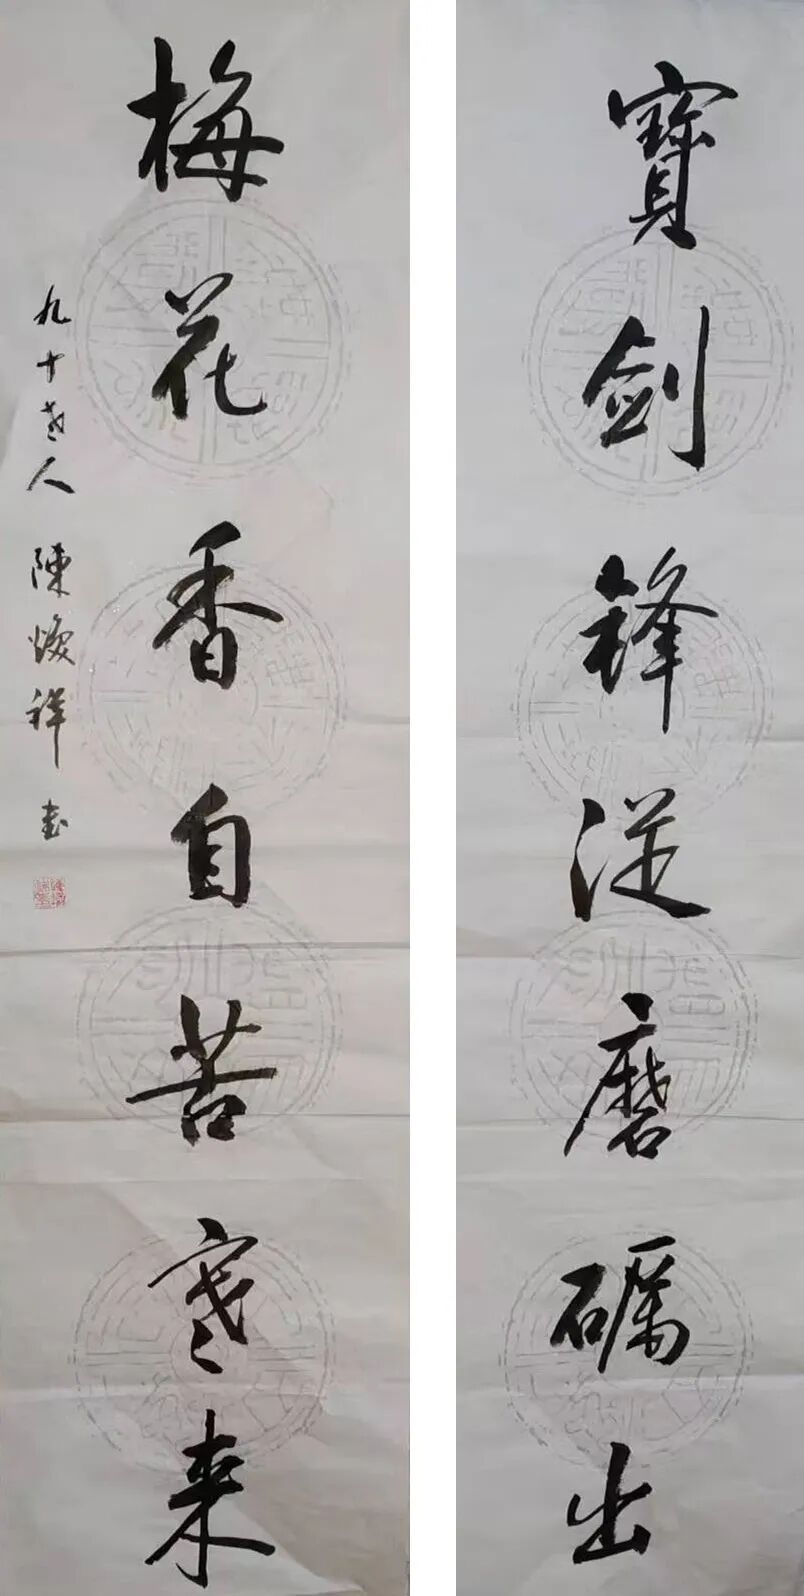 寶劍鋒從磨礪出
梅花香自苦寒來
九十老人 陳煥祥 書